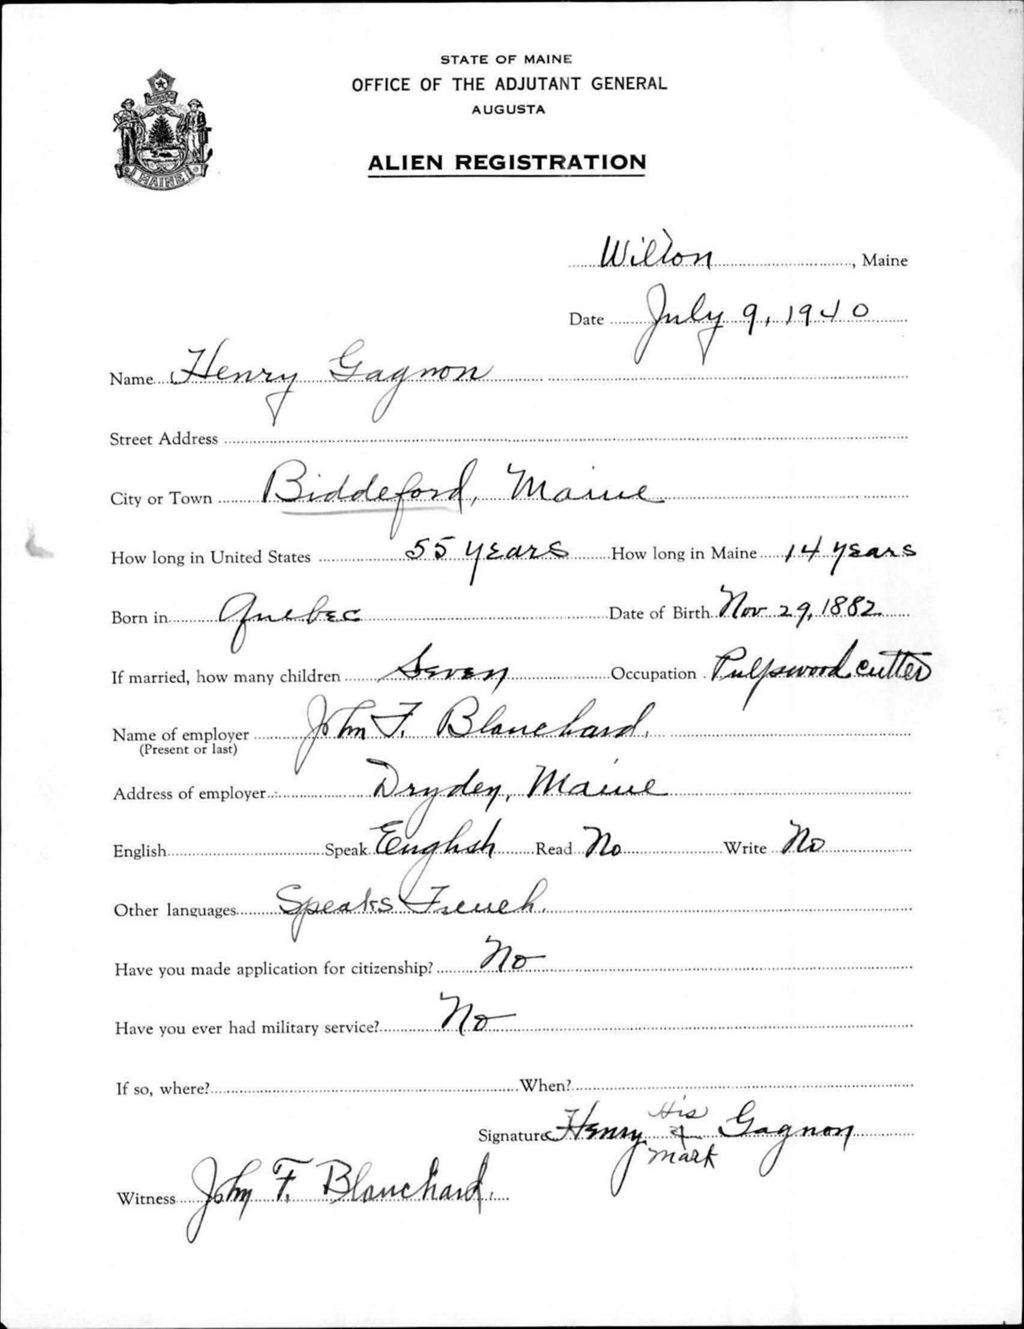 STATE OF MAINE
OFFICE OF THE ADJUTANT GENERAL
AUGUSTA
ALIEN REGISTRATION
MAINE
Wilton, Maine
Date July 9, 1940
Name Henry Gagnon
Street Address
City or Town Biddeford, Maine
How long in United States 55 years How long in Maine 14 years
Born in Quebec Date of Birth Nov 29, 1882
If married, how many children Seven Occupation Pulpwood cutter
Name of employer John F. Blanchard.
(Present or last)
Address of employer Dryden, Maine
English Speak English Read No Write No
Other languages Speaks French.
Have you made application for citizenship? No
Have you ever had military service? No
If so, where? When?
His
Signature Henry x Gagnon
mark
Witness John F. Blanchard.